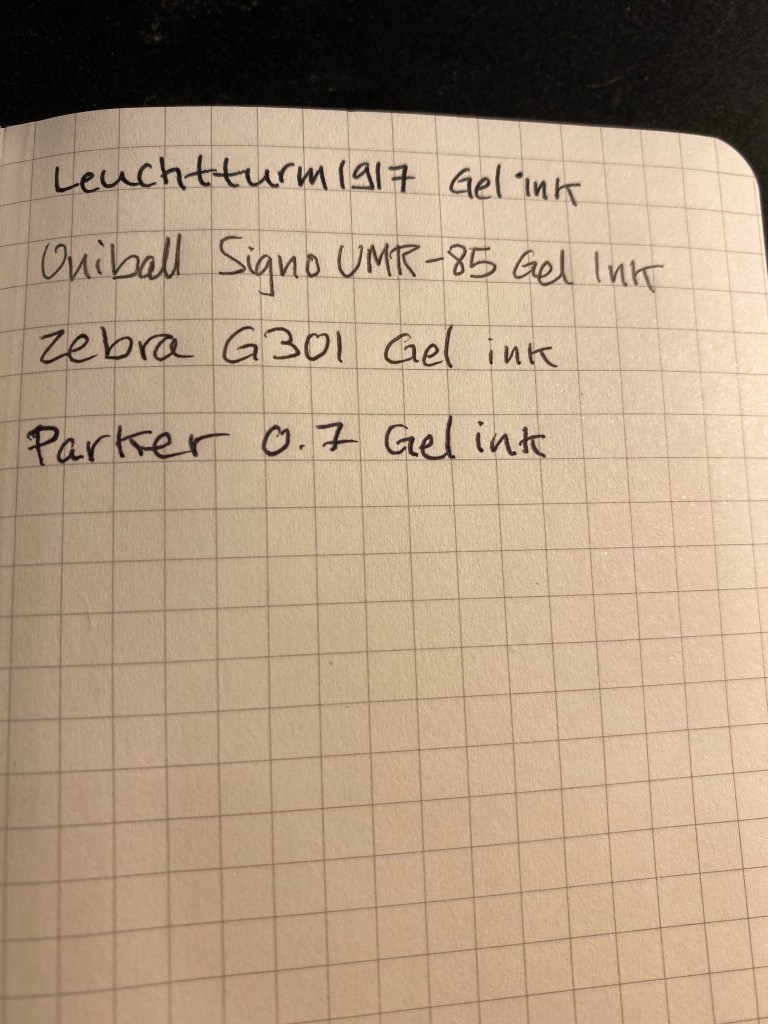 Leuchtturm1917 Gel ink
Uniball Signo UMR-85 Gel Ink
Zebra G301 Gel ink
Parker 0.7 Gel ink